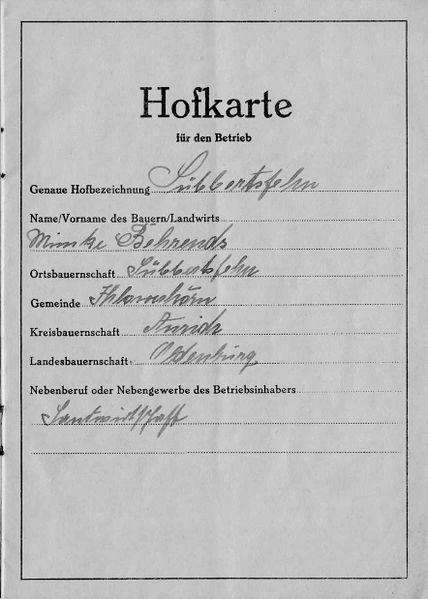 Hofkarte
für den Betrieb
Genaue Hofbezeichnung Lübbertsfehn
Name/Vorname des Bauern/Landwirts
Mimke Behrends
Ortsbauernschaft Lübbertsfehn
Gemeinde Ihlowerhörn
Kreisbauernschaft Aurich
Landesbauernschaft Oldenburg
Nebenberuf oder Nebengewerbe des Betriebsinhabers
Lantwirtschaft